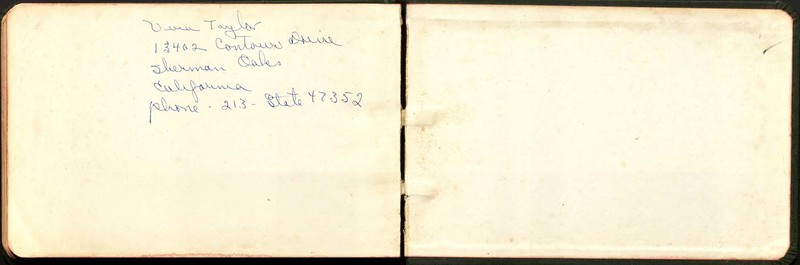 Vera Taylor
13402 Contour Drive
Sherman Oaks
California
phone - 213 - State 47352